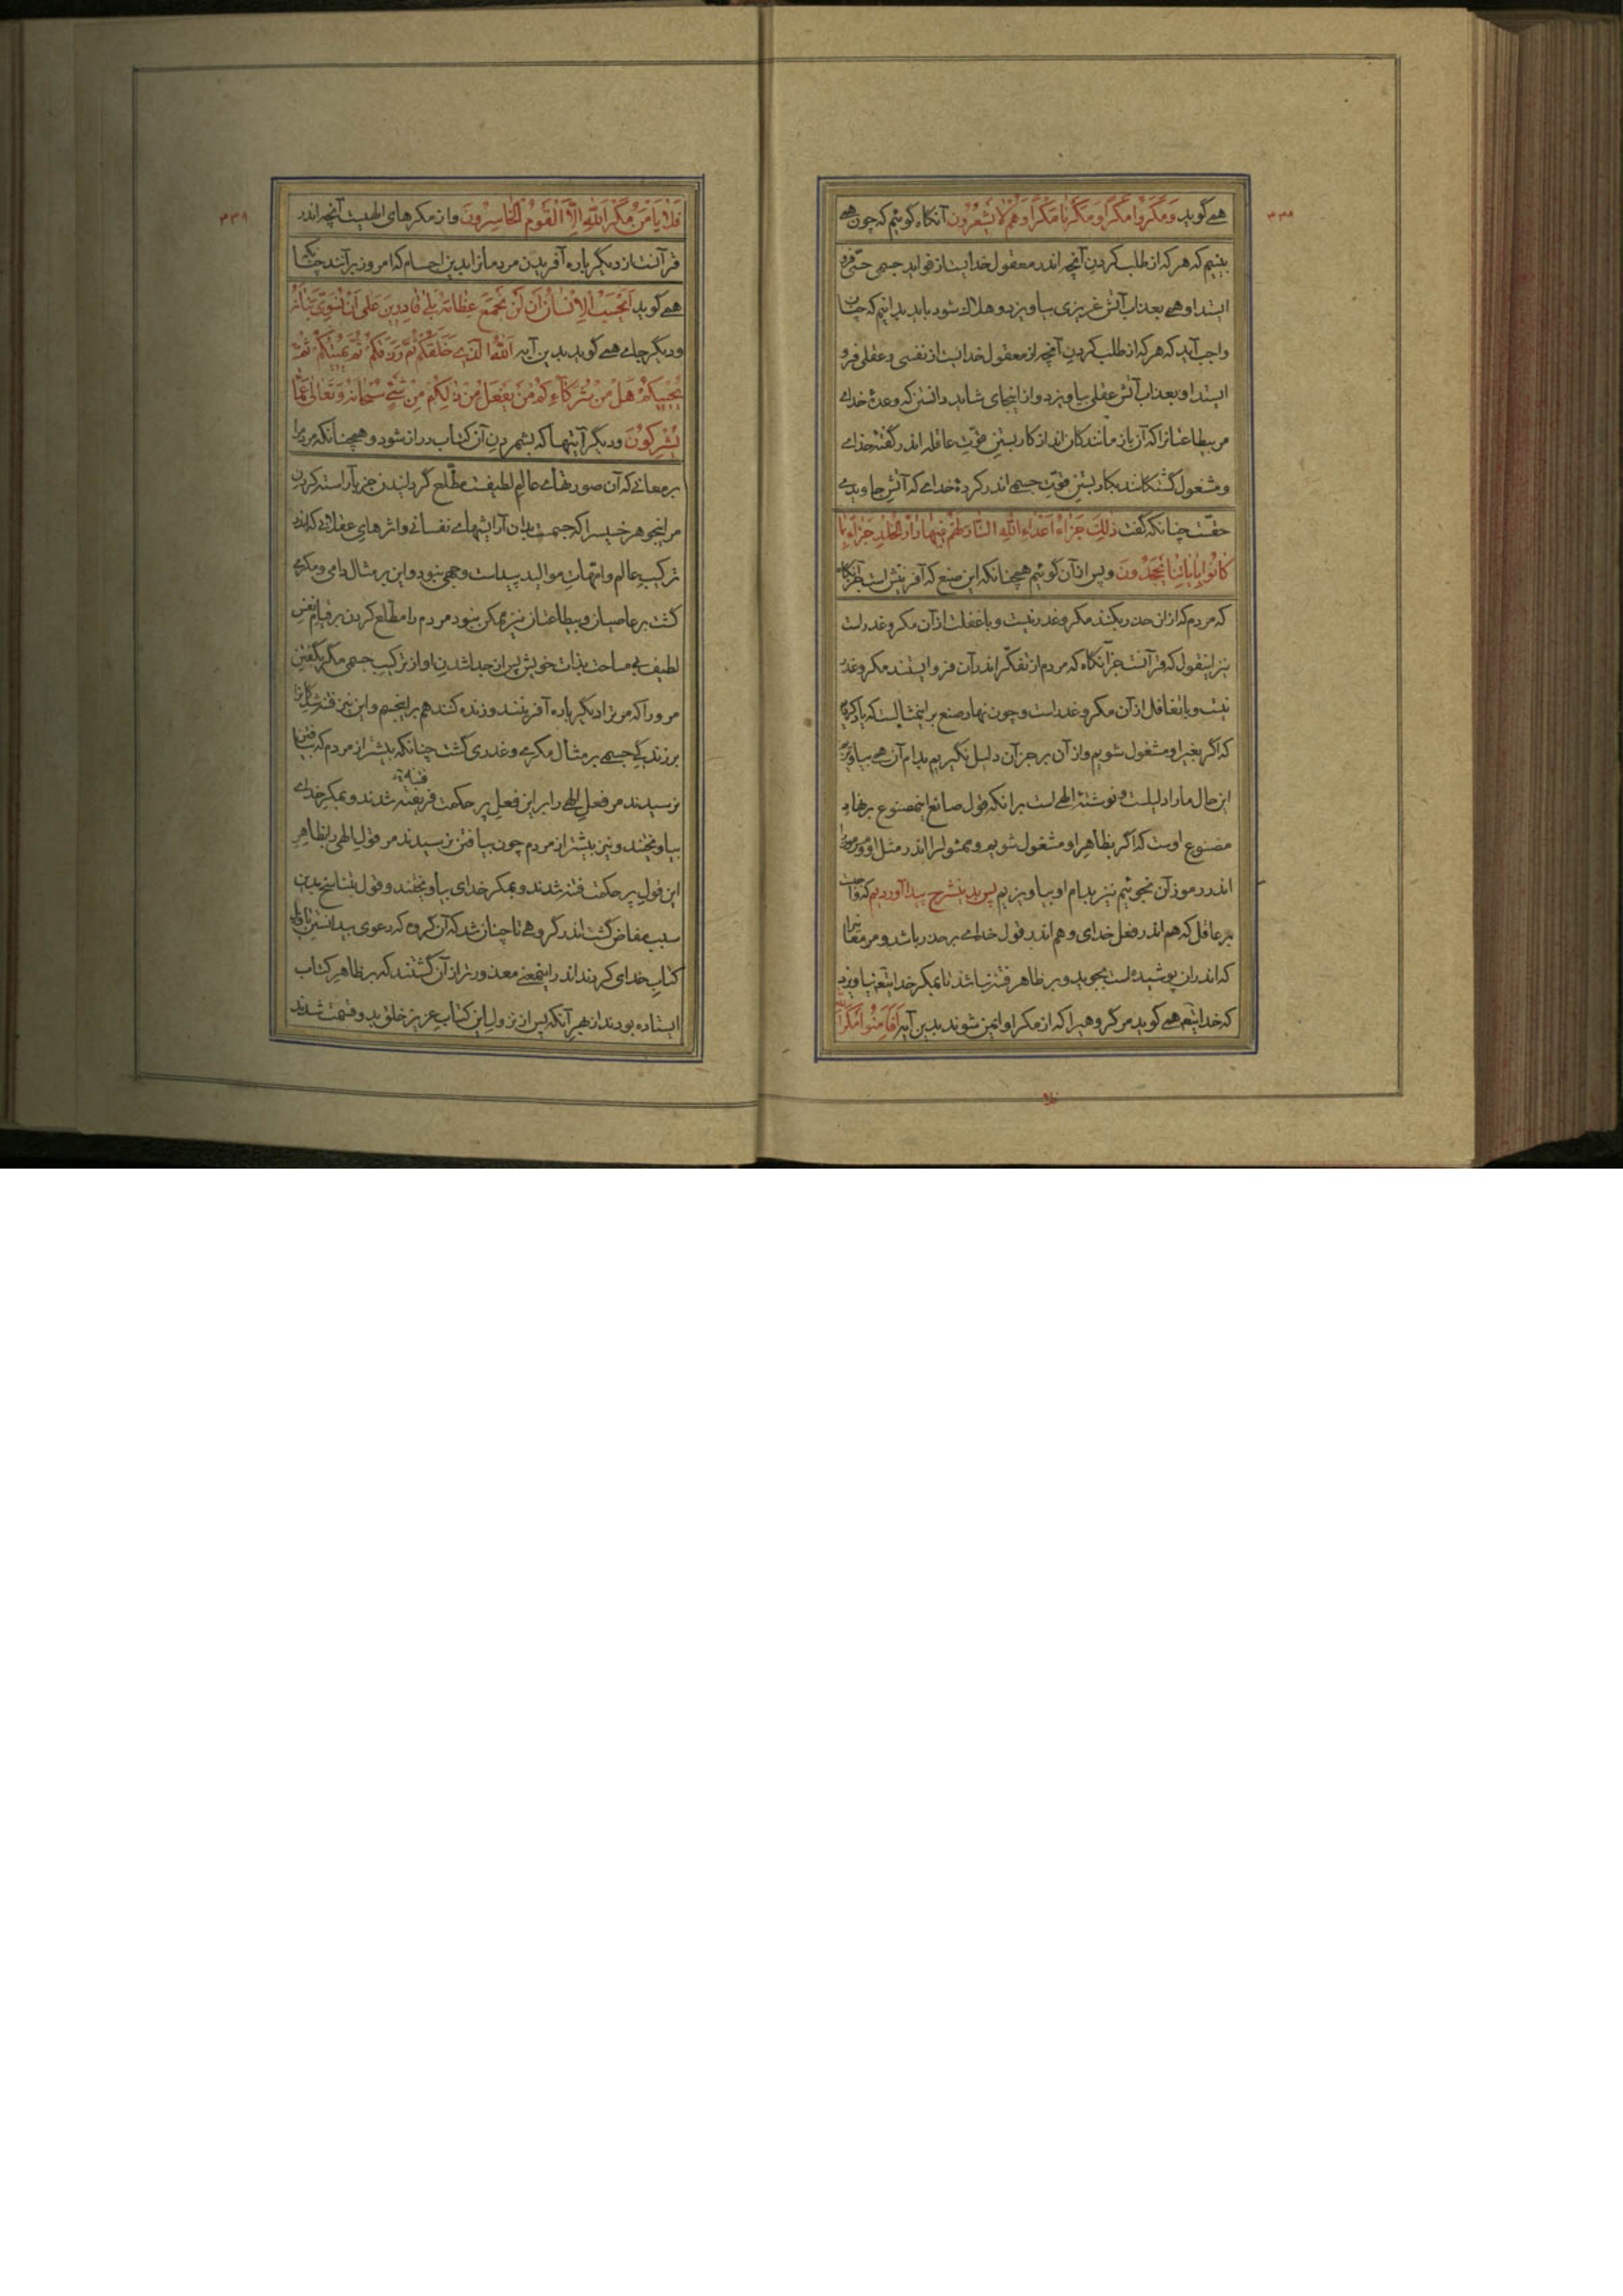 ۳۳۸
همی گوید وَمَكَرُوا مَكْرًا وَمَكَرْنَا مَكْرًا وَهُمْ لَا يَشْعُرُونَ آنکاه کوئیم که چون همی
بینیم که هر که از طلب کردن آنچه اندر معقول خدایست از فواید جسمی حسّی فرو
ایستد او همی بعذاب آتش غریزی بیاویزد و هلاک شود باید بدانیم که چنان
واجب آید که هر که از طلب کردن آنچه از معقول خدایست از نفسی و عقلی فرو
ایستد او بعذاب آتش عقلی بیاویزد و از اینجای شاید دانستن که وعدهٔ خدای
مر بیطاعتانرا که آن بازماندکان اند از کار بستن قوّت عاقله اندر گفته خدای
و مشغول گشتکانند بکار بستن قوّت حسی اندر کردهٔ خدای که آتش جاویدی
حقّست چنانکه گفت ذٰلِكَ جَزَاءُ أَعْدَاءِ اللّٰهِ النَّارُ لَهُمْ فِيهَا دَارُ الْخُلْدِ جَزَاءً بِمَا
كَانُوا بِآيَاتِنَا يَجْحَدُونَ و پس از آن کوئیم همچنانکه این صنع که آفرینش است جز آنکاه
که مردم که از ان حذر بکند مکر و غدر نیست و با غفلت از آن مکر و غدر است
نیز اینقول که قرآنست جز آنکاه که مردم از تفکّر اندر آن فرو ایستند مکر و غدر
نیست و با تغافل از آن مکر و غدر است و چون نهاد صنع بر اینمثالست که یاد کردیم
که اگر بغیر او مشغول شویم و از آن بر جز آن دلیل نگیریم بدام آن همی بیاویزیم
این حال ما را دلیلست و نوشتهٔ الهی است برانکه قول صانع اینمصنوع بر نهاد
مصنوع اوست که اگر بظاهر او مشغول شویم و ممثول را اندر مثل او و مرموز را
اندر رموز آن نجوئیم نیز بدام او بیاویزیم پس بدین شرح پیدا آوردیم که واجبست
بر عاقل که هم اندر فعل خدای و هم اندر قول خدای بر حذر باشد و مر معانیرا
که اندر ان پوشیده است بجوید و بر ظاهر فتنه نباشد تا بمکر خدایتعه نیاویزد
که خدایتعم همی گوید مر گروهیرا که از مکر او ایمن شوند بدین آیه أَفَأَمِنُوا مَكْرَ اللّٰهِ
۳۳۹
فَلَا يَأْمَنُ مَكْرَ اللّٰهِ إِلَّا الْقَوْمُ الْخَاسِرُونَ و از مکرهای الهیست آنچه اندر
قرآنست از دیگر باره آفریدن مردمانرا بدین اجسام که امروز برآنند چنانکه
همی گوید أَيَحْسَبُ الْإِنْسَانُ أَنْ لَنْ نَجْمَعَ عِظَامَهُ بَلَىٰ قَادِرِينَ عَلَىٰ أَنْ نُسَوِّيَ بَنَانَهُ
و دیگر جای همی گوید بدین آیه اَللّٰهُ الَّذِي خَلَقَكُمْ ثُمَّ رَزَقَكُمْ ثُمَّ يُمِيتُكُمْ ثُمَّ
يُحْيِيكُمْ هَلْ مِنْ شُرَكَاءِكُمْ مَنْ يَفْعَلُ مِنْ ذٰلِكُمْ مِنْ شَيْءٍ سُبْحَانَهُ وَتَعَالَىٰ عَمَّا
يُشْرِكُونَ و دیگر آیتها که بشمردن آن کتاب دراز شود و همچنانکه مردمرا
بر معانی که آن صورتهای عالم لطیفست مطّلع گردانیدن جز بآراسته کردن
مر اینجوهر خسیس را که جسمست بدان آرایشهای نفسانی و اثرهای عقلانی که اندر
ترکیب عالم و امّهات موالید پیداست وجهی نبود و این بر مثال دامی و مکری
گشت بر عاصیان و بیطاعتان نیز ممکن نبود مردم را مطّلع کردن بر قیام نفس
لطیف بی مساحت بذات خویش پس از جدا شدن او از ترکیب جسمی مگر بگفتن
مر ورا که مر ترا دیگر باره آفرینند و زنده کنند هم بر اینجسم و این نیز فتنه شدگانرا
بر زندگی جسمی بر مثال مکری و غدری گشت چنانکه بیشتر از مردم که بیافتن
نرسیدند مر فعل الهی را بر این فعل پر حکمت فریفته شدند و بمکر خدای
فتنه
بیاویختند و نیز بیشتر از مردم چون بیافتن نرسیدند مر قول الهی را بظاهر
این قول پر حکمت فتنه شدند و بمکر خدای بیاویختند و قول بتناسخ بدین
سبب مفاض گشت اندر گروهی تا چنان شد که آن گروه که دعوی بدانستن تاویل
کتاب خدای کردند اندر اینمعنی معذورتر از آن گشتند که بر ظاهر کتاب
ایستاده بودند از بهر آنکه پس از نزول این کتاب عزیز خلق بدو قسمت شدند